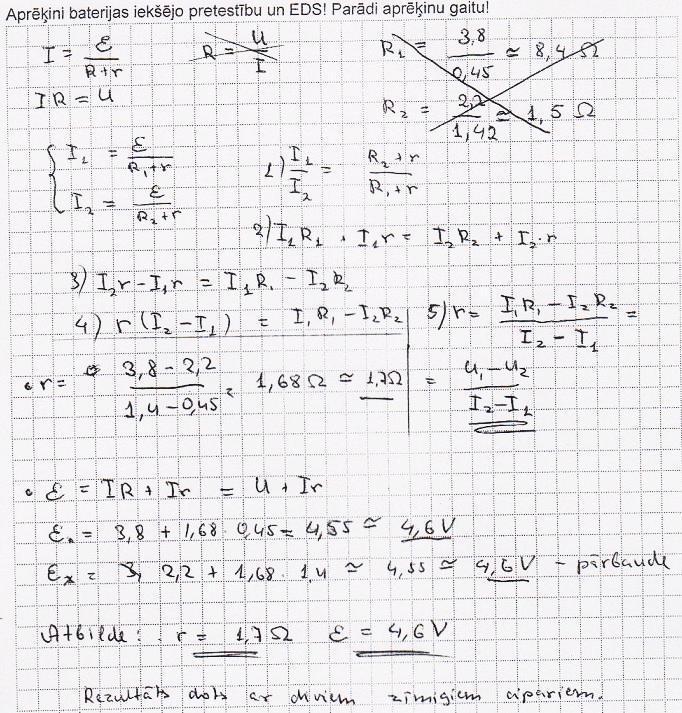 Aprēķini baterijas iekšējo pretestību un EDS! Parādi aprēķinu gaitu!
I = ε/(R+r)
R = U/I
R₁ = 3,8/0,45 ≃ 8,4 Ω
IR = U
R₂ = 2,2/1,42 ≃ 1,5 Ω
{ I₁ = ε/(R₁+r)
I₂ = ε/(R₂+r)
1) I₁/I₂ = (R₂+r)/(R₁+r)
2) I₁R₁ + I₁r = I₂R₂ + I₂·r
3) I₂r – I₁r = I₁R₁ – I₂R₂
4) r (I₂ – I₁) = I₁R₁ – I₂R₂
5) r = (I₁R₁ – I₂R₂)/(I₂ – I₁) =
= (U₁ – U₂)/(I₂ – I₁)
• r = (3,8 – 2,2)/(1,4 – 0,45) = 1,68 Ω ≃ 1,7Ω
• ε = IR + Ir = U + Ir
ε₁ = 3,8 + 1,68 · 0,45 = 4,55 ≃ 4,6 V
εₓ = 2,2 + 1,68 · 1,4 ≃ 4,55 ≃ 4,6 V – pārbaude
Atbilde: r = 1,7 Ω ε = 4,6 V
Rezultāts dots ar diviem zīmīgiem cipariem.